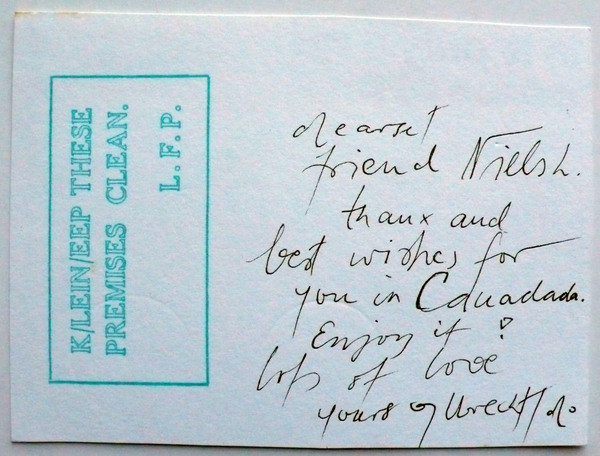 K/LEIN/EEP THESE
PREMISES CLEAN.
L.F.P.
dearest
friend Niels L.
thanx and
best wishes for
you in Canadada.
Enjoy it !
lots of love
yours